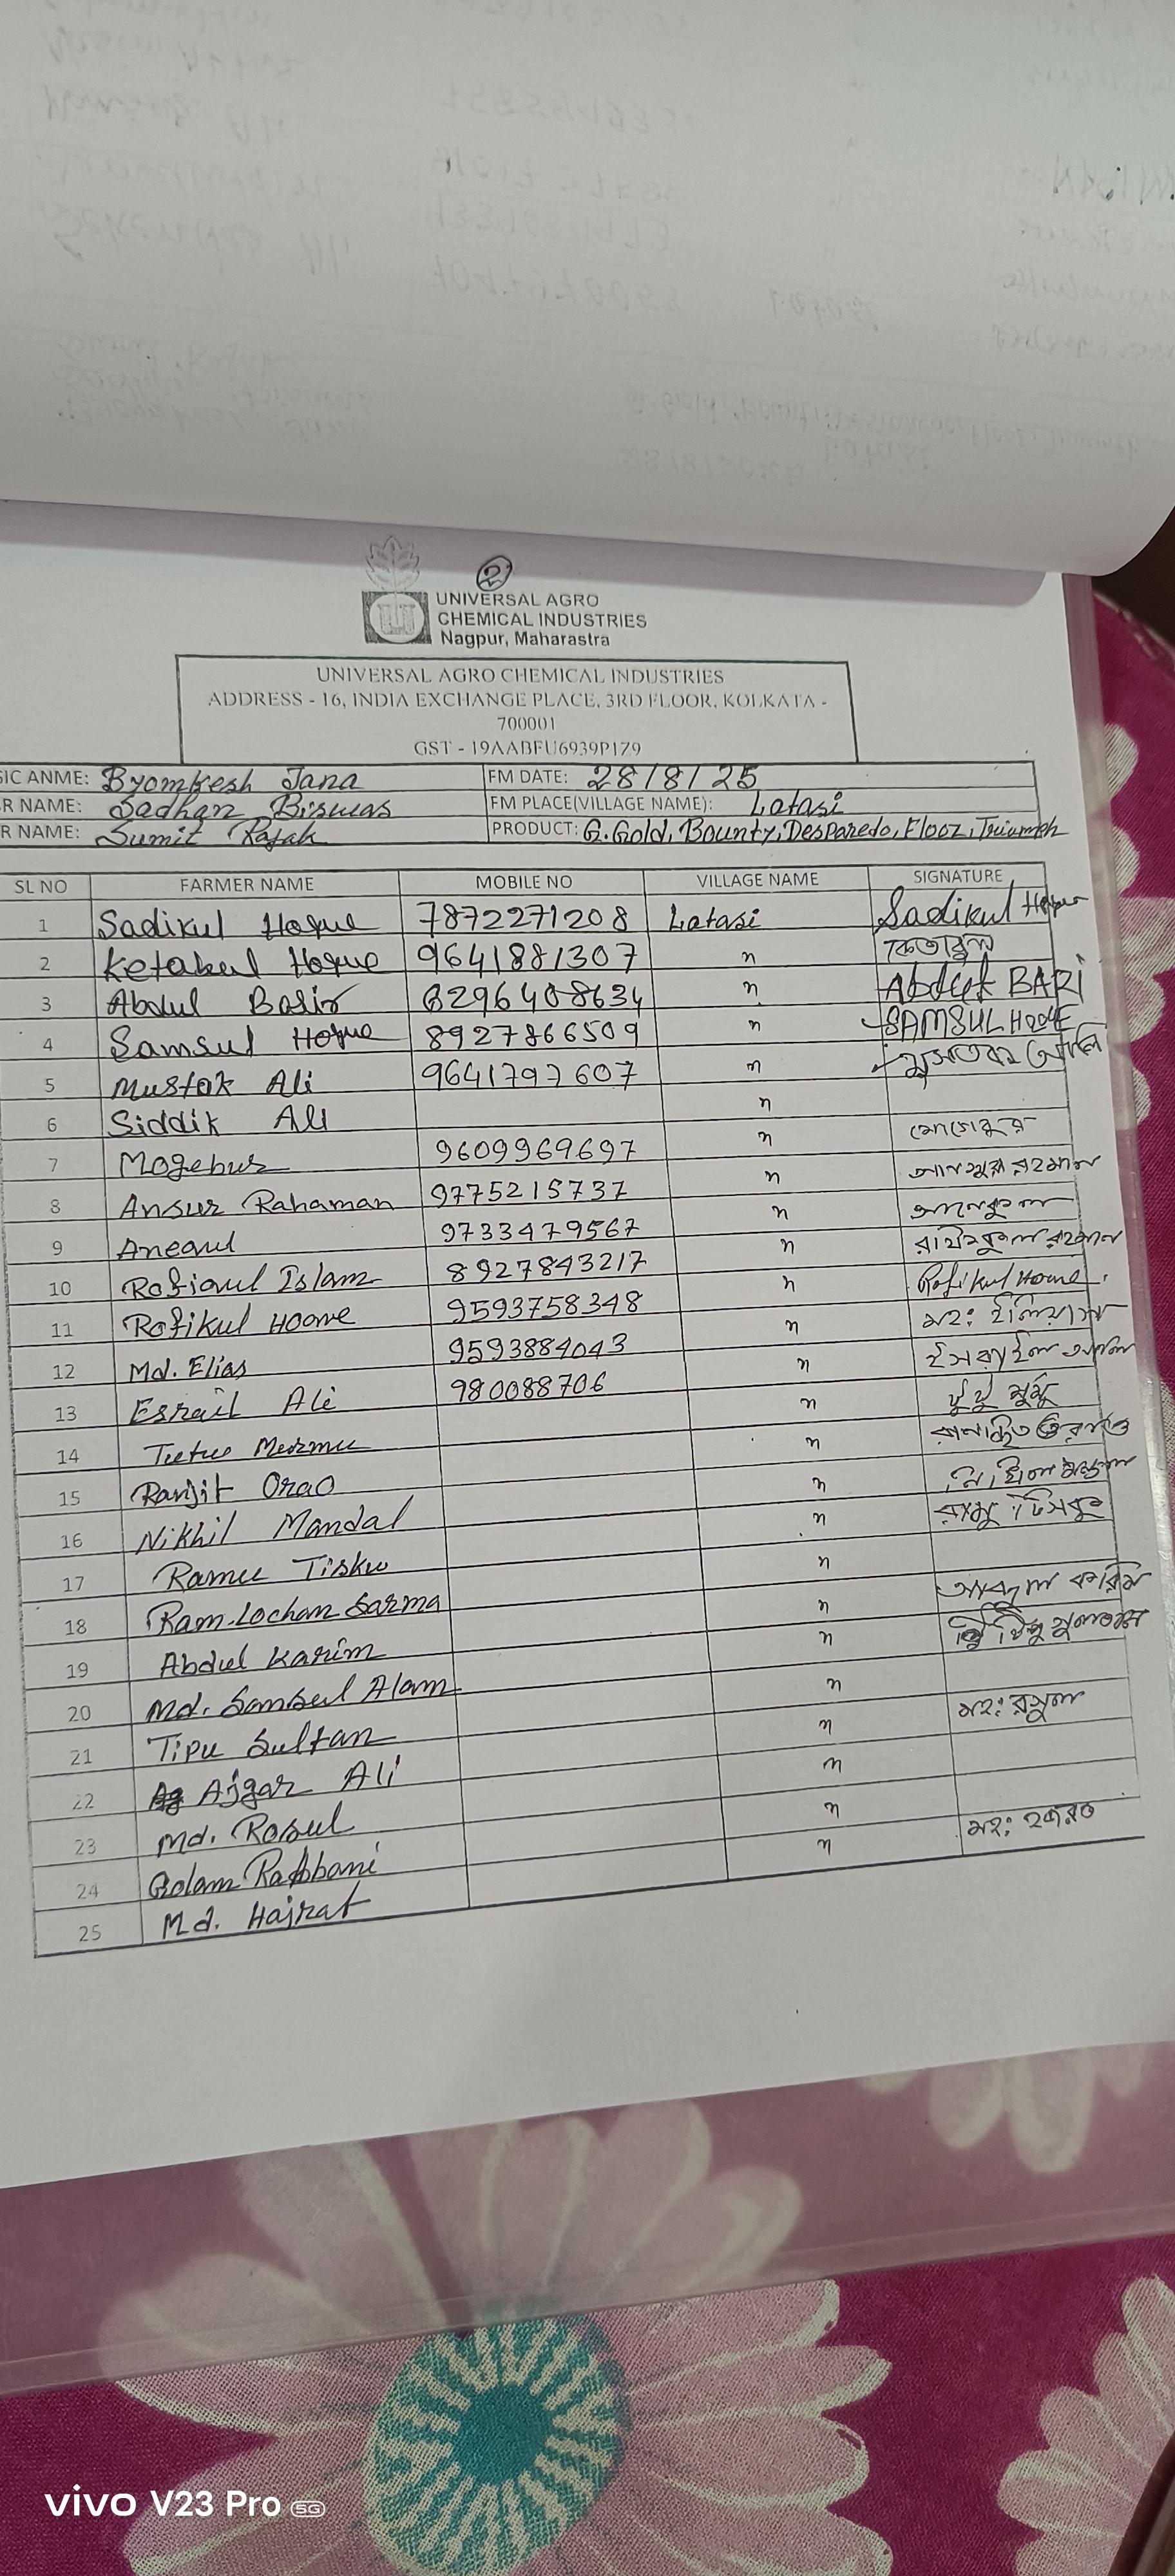 2
UNIVERSAL AGRO
CHEMICAL INDUSTRIES
Nagpur, Maharastra
UNIVERSAL AGRO CHEMICAL INDUSTRIES
ADDRESS - 16, INDIA EXCHANGE PLACE, 3RD FLOOR, KOLKATA -
700001
GST - 19AABFU6939P1Z9
SIC ANME: Byomkesh Jana FM DATE: 28/8/25
R NAME: Sadhan Biswas FM PLACE(VILLAGE NAME): Latasi
R NAME: Sumit Rajak PRODUCT: G.Gold, Bounty, Desparedo, Flooz, Triumph
SL NO FARMER NAME MOBILE NO VILLAGE NAME SIGNATURE
1 Sadikul Hoque 7872271208 Latasi Sadikul
2 Ketabul Hoque 9641881307 "
3 Abdul Basir 6296408634 " BARI
4 Samsul Hoque 8927866509 " SAMSUL
5 Mustak Ali 9641797607 " আলি
6 Siddik Ali "
7 Mogebur 9609969697 "
8 Ansur Rahaman 9775215737 " রহমান
9 Aneoul 9733479567 "
10 Rofioul Islam 8927843217 "
11 Rofikul Hoque 9593758348 " Rofikul
12 Md. Elias 9593884043 " মহ: ইলিয়াস
13 Esrail Ali 980088706 " ইসরাইল আলি
14 Tutu Murmu "
15 Ranjit Orao "
16 Nikhil Mandal " নিখিল মন্ডল
17 Ramu Tisku " রামু
18 Ram.Lochan Sarma "
19 Abdul Karim " আব্দুল করিম
20 Md. Samsul Alam "
21 Tipu Sultan "
22 Ajgar Ali " মহ: রসুল
23 Md. Rosul "
24 Golam Rabbani "
25 Md. Hajrat " মহ: হজরত
vivo V23 Pro 5G